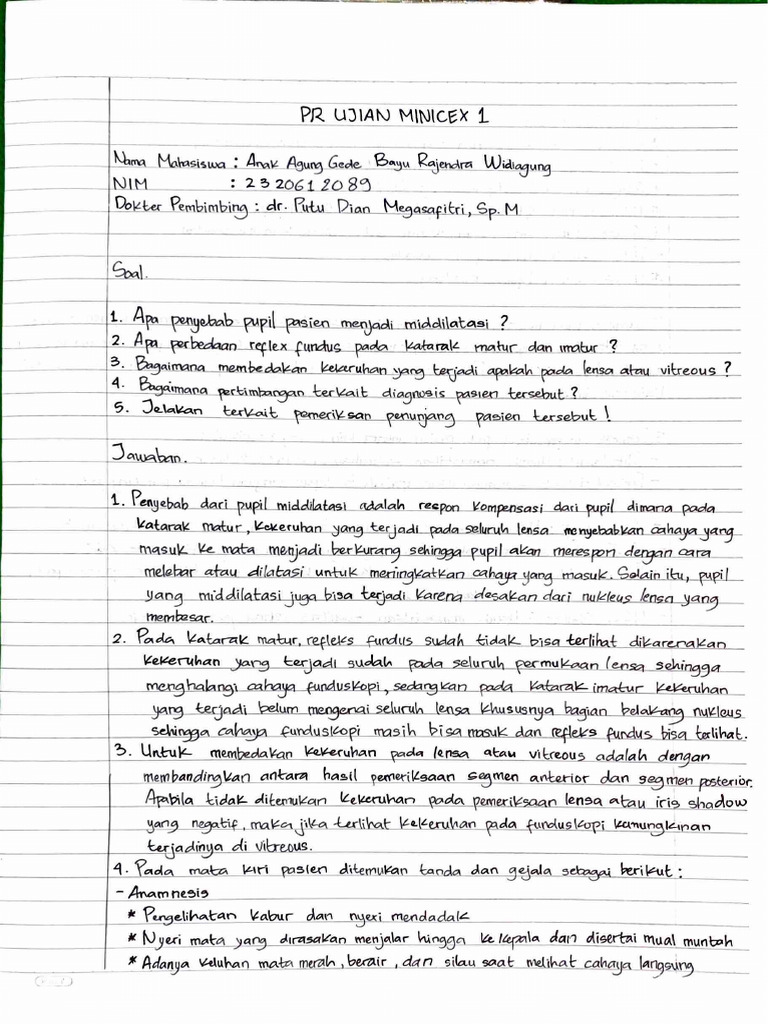 PR UJIAN MINICEX 1
Nama Mahasiswa : Anak Agung Gede Bayu Rajendra Widiagung
NIM : 2320612089
Dokter Pembimbing : dr. Putu Dian Megasafitri, Sp. M
Soal.
1. Apa penyebab pupil pasien menjadi middilatasi ?
2. Apa perbedaan reflex fundus pada katarak matur dan imatur ?
3. Bagaimana membedakan kekeruhan yang terjadi apakah pada lensa atau vitreous ?
4. Bagaimana pertimbangan terkait diagnosis pasien tersebut ?
5. Jelakan terkait pemeriksan penunjang pasien tersebut !
Jawaban.
1. Penyebab dari pupil middilatasi adalah respon kompensasi dari pupil dimana pada
katarak matur, kekeruhan yang terjadi pada seluruh lensa menyebabkan cahaya yang
masuk ke mata menjadi berkurang sehingga pupil akan merespon dengan cara
melebar atau dilatasi untuk meningkatkan cahaya yang masuk. Selain itu, pupil
yang middilatasi juga bisa terjadi karena desakan dari nukleus lensa yang
membesar.
2. Pada katarak matur, refleks fundus sudah tidak bisa terlihat dikarenakan
kekeruhan yang terjadi sudah pada seluruh permukaan lensa sehingga
menghalangi cahaya funduskopi, sedangkan pada katarak imatur kekeruhan
yang terjadi belum mengenai seluruh lensa khususnya bagian belakang nukleus
sehingga cahaya funduskopi masih bisa masuk dan refleks fundus bisa terlihat.
3. Untuk membedakan kekeruhan pada lensa atau vitreous adalah dengan
membandingkan antara hasil pemeriksaan segmen anterior dan segmen posterior.
Apabila tidak ditemukan kekeruhan pada pemeriksaan lensa atau iris shadow
yang negatif, maka jika terlihat kekeruhan pada funduskopi kemungkinan
terjadinya di vitreous.
4. Pada mata kiri pasien ditemukan tanda dan gejala sebagai berikut :
- Anamnesis
* Pengelihatan kabur dan nyeri mendadak
* Nyeri mata yang dirasakan menjalar hingga ke kepala dan disertai mual muntah
* Adanya keluhan mata merah, berair, dan silau saat melihat cahaya langsung